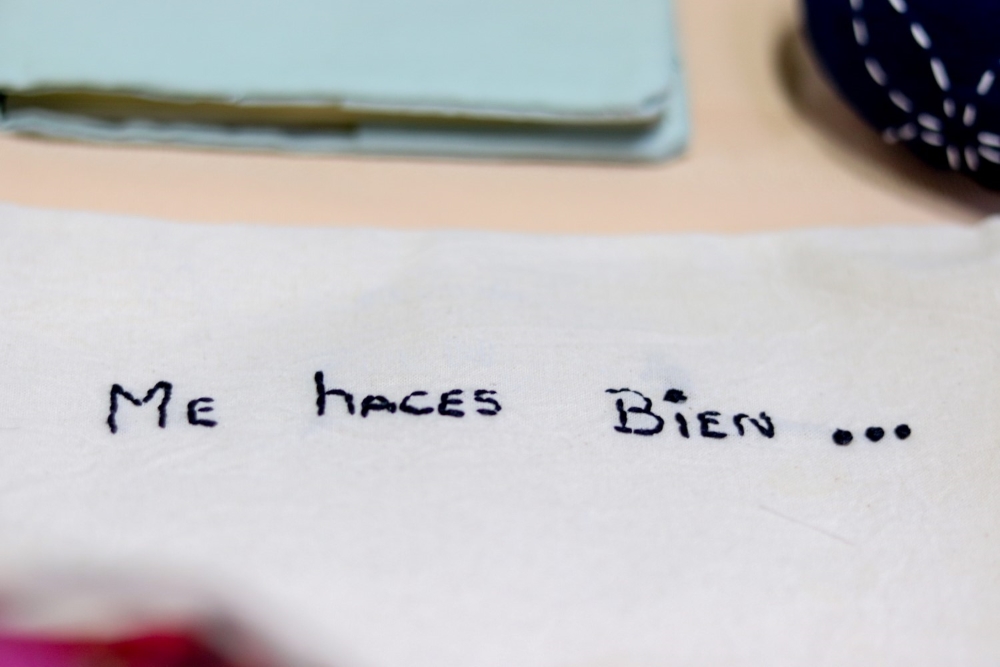 Me haces Bien ...